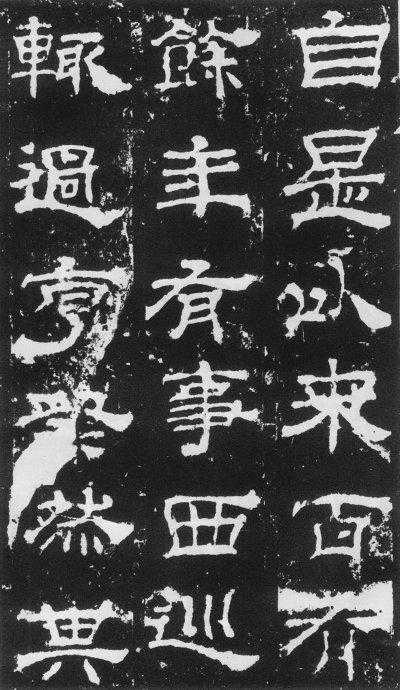 自是以來百有
餘年有事西巡
輒過亨祭然其